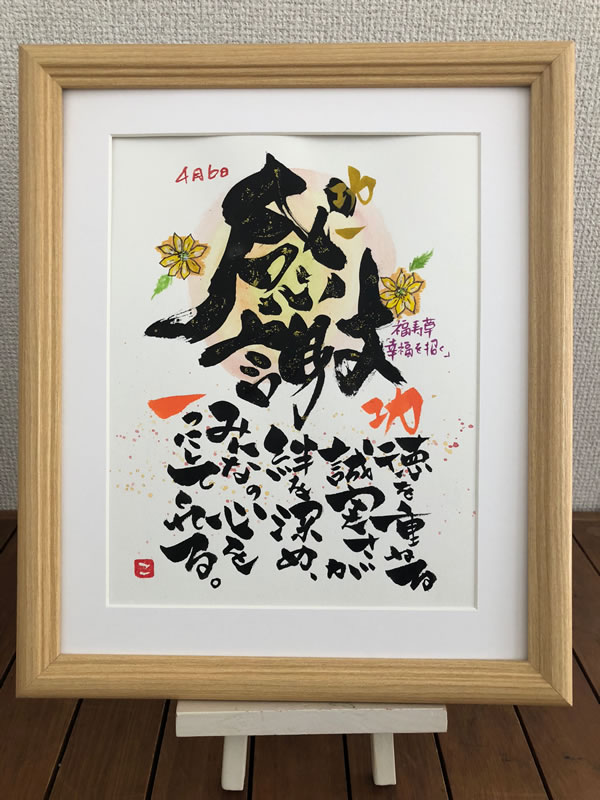 4月6日
功一
感謝
福寿草
「幸福を招く」
功徳を重ねる
誠実さが
絆を深め、
みんなの心を
一つにしてくれる。